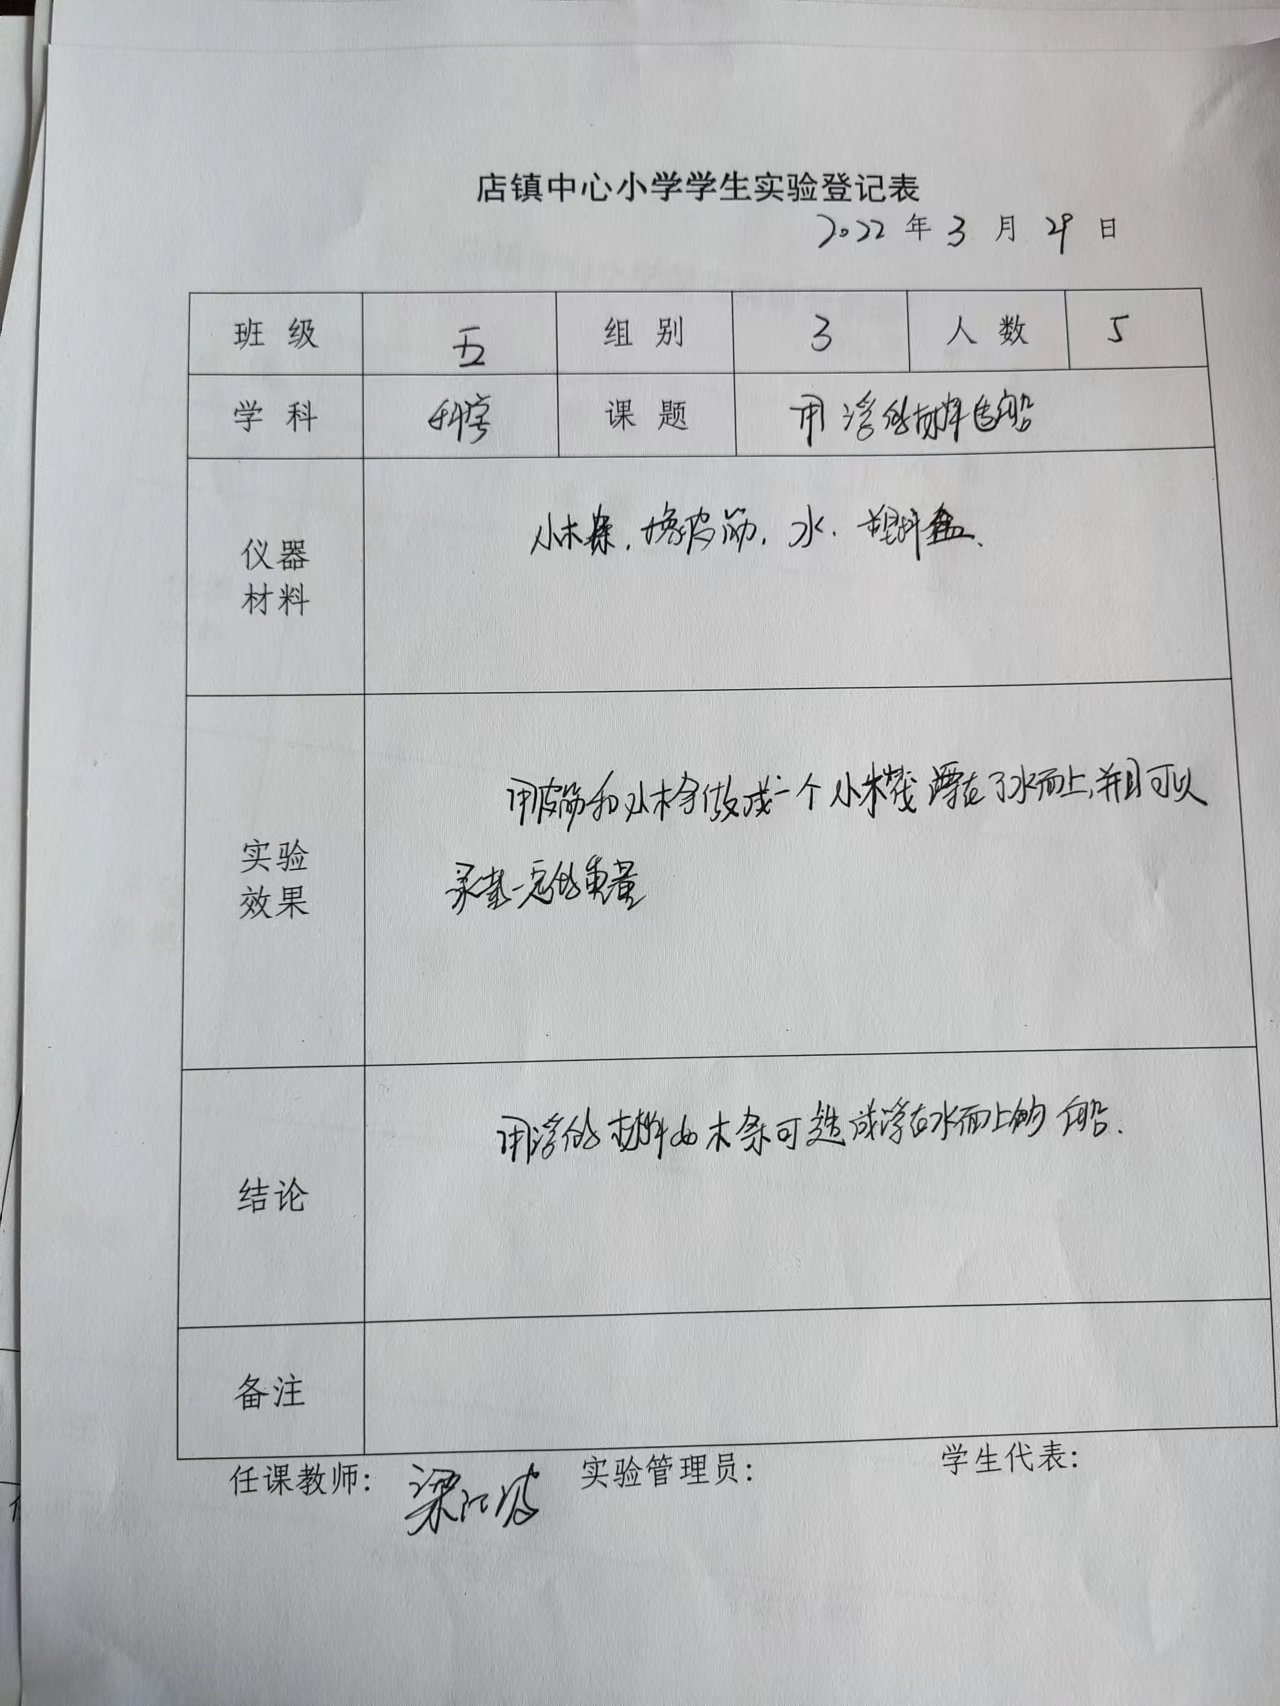 店镇中心小学学生实验登记表
2022 年 3 月 29 日
班 级 五 组 别 3 人 数 5
学 科 科学 课 题 用浮的材料造船
仪器
材料
小木条、橡皮筋、水、塑料盒、
实验
效果
用皮筋和小木条做成一个小木筏 漂在了水面上,并且可以
承载一定的重量
结论
用浮的材料如木条可造成浮在水面上的船.
备注
任课教师: 梁 实验管理员: 学生代表: